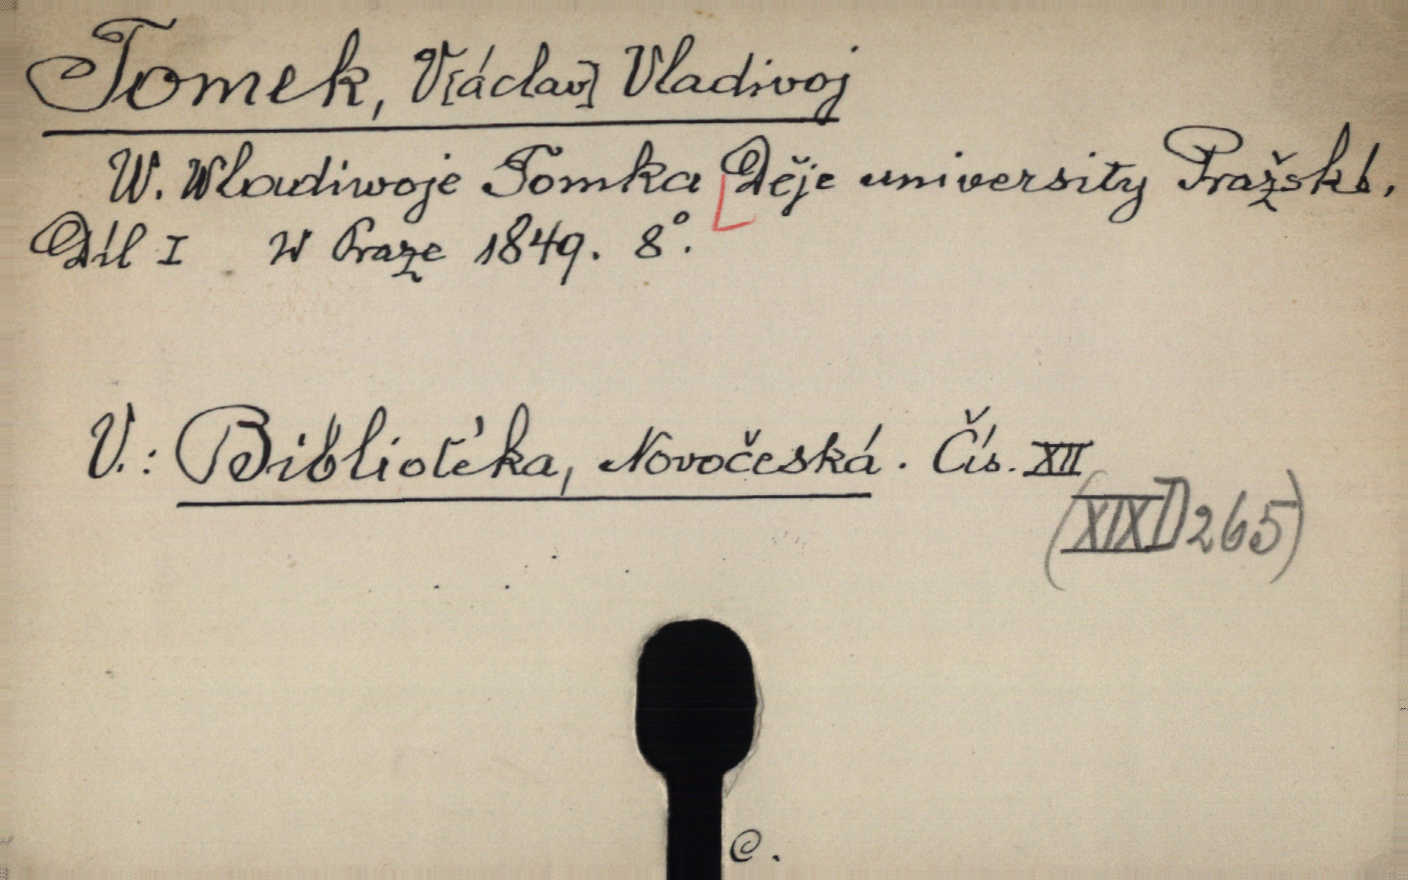 Tomek, V[áclav] Vladivoj
W. Wladiwoje Tomka Děje university Pražské.
Díl I W Praze 1849. 8°.
V.: Bibliotéka, Novočeská. Čís. XII
(XIX D 265)
C.